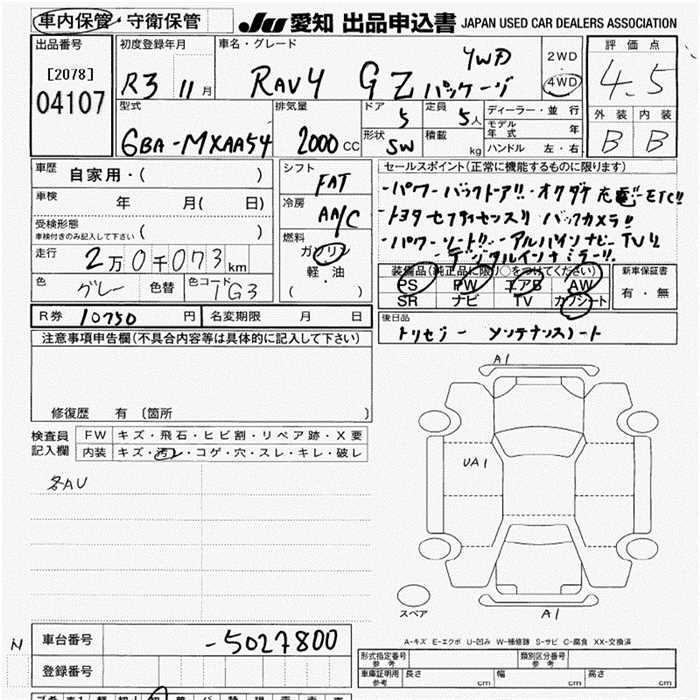 車内保管・守衛保管
JU 愛知 出品申込書 JAPAN USED CAR DEALERS ASSOCIATION
出品番号 [2078] 04107
初度登録年月 R3 11月
車名・グレード RAV4 GZパッケージ 4WD
2WD
4WD
評価点 4.5
外装 内装
B B
型式 6BA-MXAA54
排気量 2000cc
ドア 5
定員 5人
形状 SW
積載 kg
ディーラー・並行
モデル年式 年
ハンドル 左・右
車歴 自家用・( )
車検 年 月( 日)
受検形態 ( )
車検付きのみ記入して下さい
走行 2万0千073km
色 グレー 色替 色コード 1G3
シフト FAT
冷房 AA/C
燃料
ガソリン
軽・油
( )
セールスポイント(正常に機能するものに限ります)
・パワーバックドア!! ・オクダケ充電 ・ETC!!
・トヨタセフティセンス!! バックカメラ!!
・パワーシート!! ・アルパインナビ TV!!
・デジタルインナーミラー!!
装備品(純正品に限り○をつけてください)
PS PW エアB AW
SR ナビ TV カワシート
新車保証書
有・無
R券 10750円 名変期限 月 日
後日品
トリセツ メンテナンスノート
注意事項申告欄(不具合内容等は具体的に記入して下さい)
修復歴 有 〔箇所 〕
検査員記入欄
FW キズ・飛石・ヒビ割・リペア跡・X要
内装 キズ・汚レ・コゲ・穴・スレ・キレ・破レ
各AU
A1
UA1
A1
スペア
A-キズ E-エクボ U-凹み W-補修跡 S-サビ C-腐食 XX-交換済
N
車台番号 -5027800
登録番号
形式指定番号 参考
類別区分番号 参考
車庫証明用 参考 長さ cm 幅 cm 高さ cm